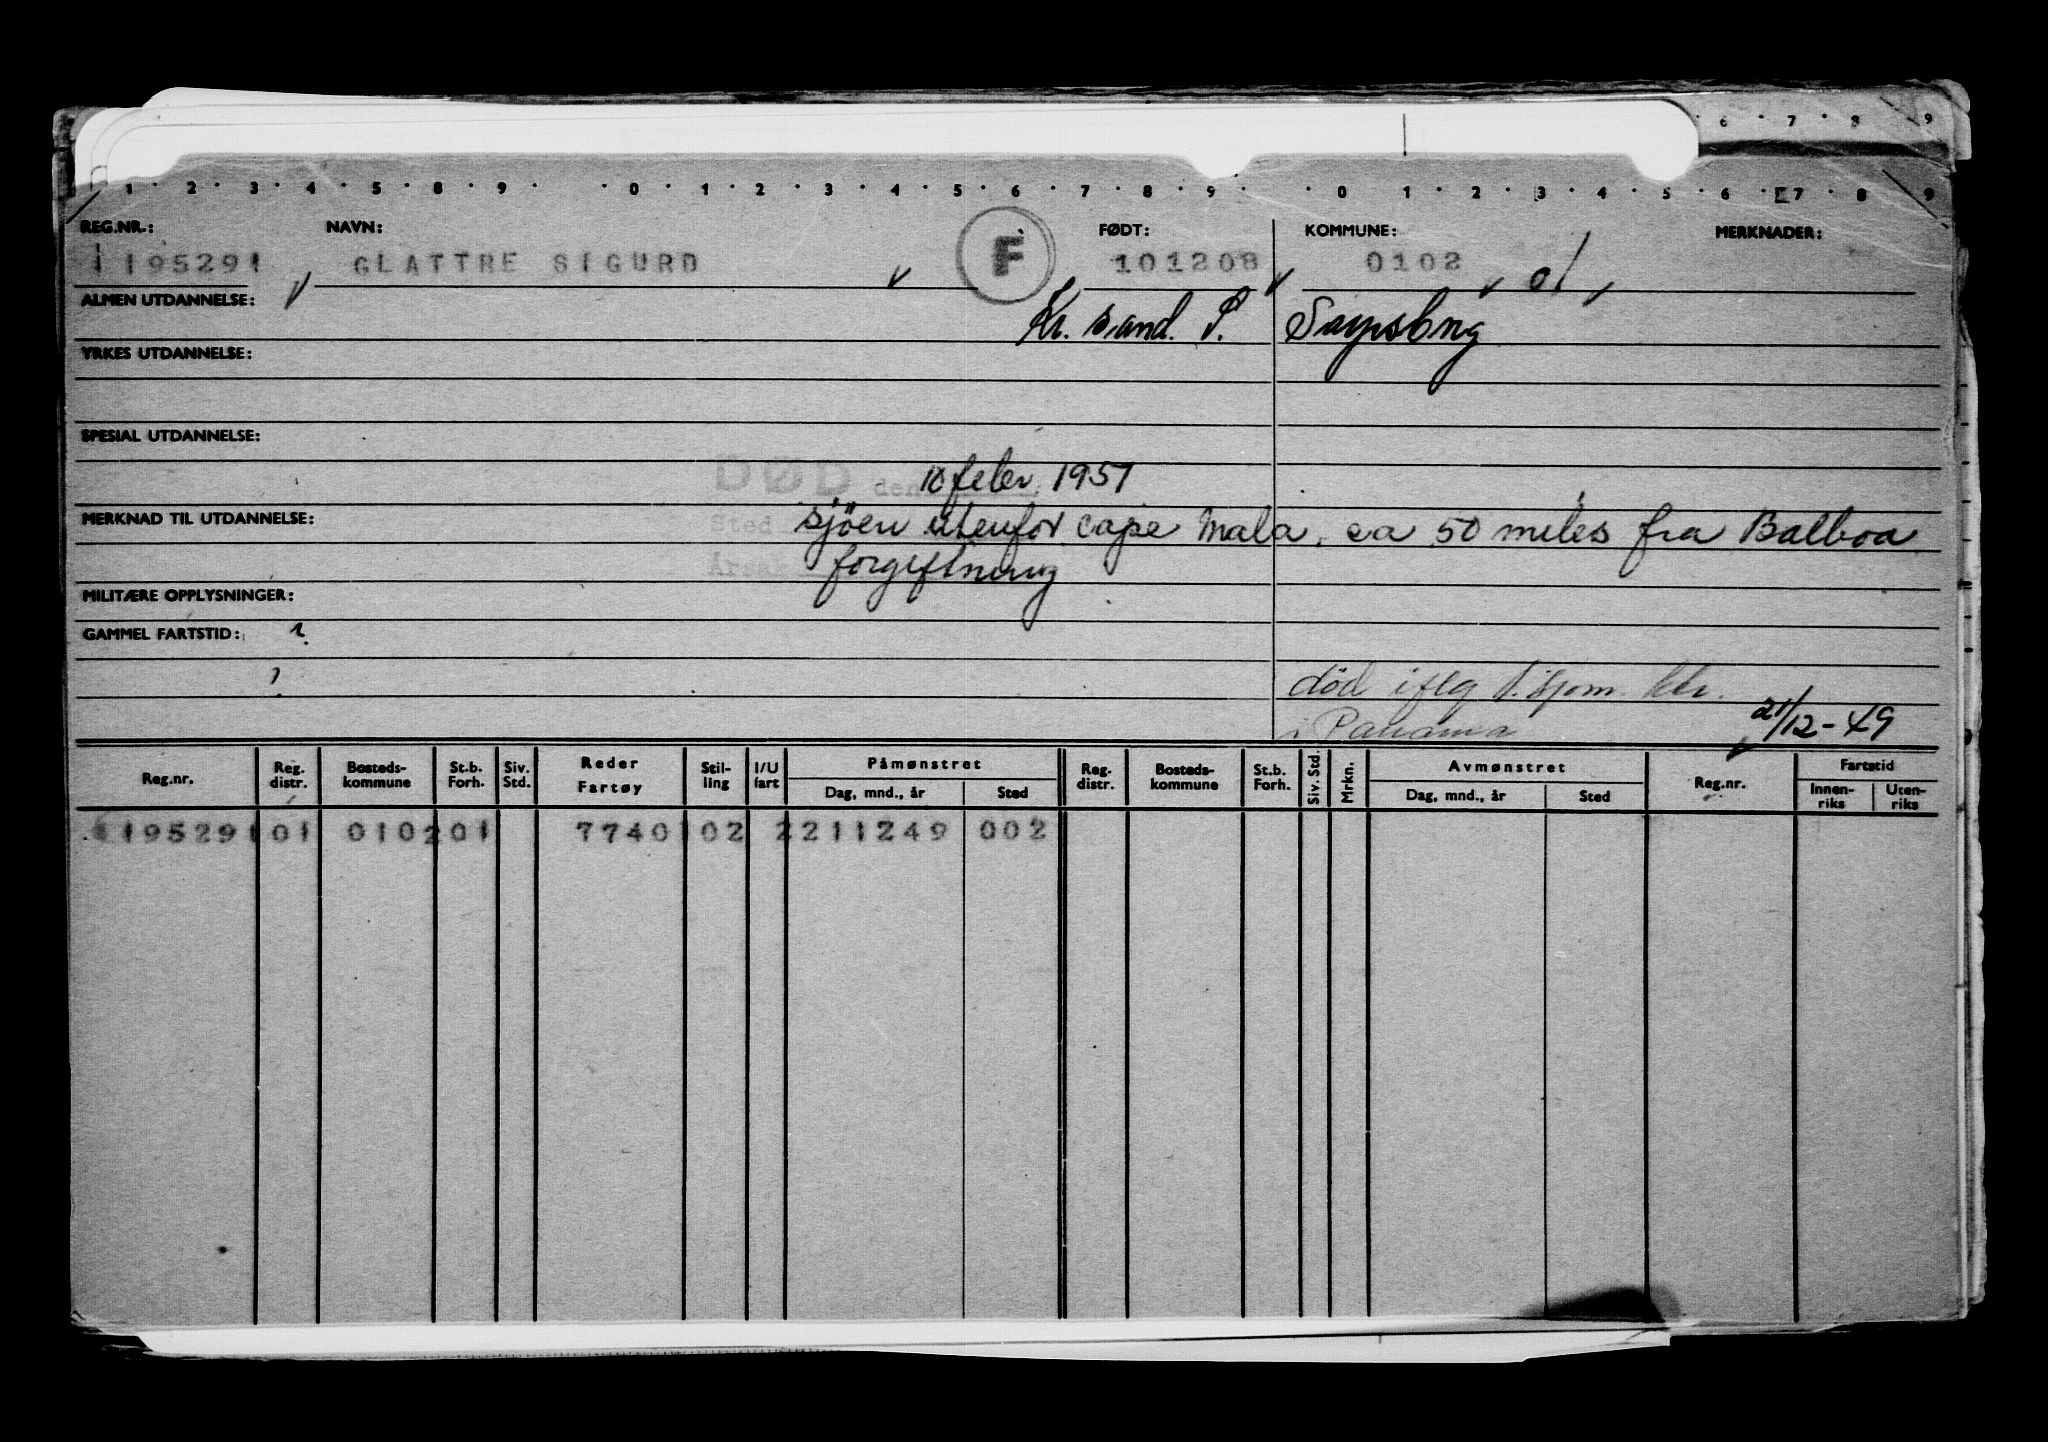 6 · 7 · 8 · 9
1 · 2 · 3 · 4 · 5 · 8 · 9 · · 0 · 1 · 2 · 3 · 4 · 5 · 6 · 7 · 8 · 9 · · 0 · 1 · 2 · 3 · 4 · 5 · 6 · 7 · 8 · 9
REG.NR.: NAVN: F FØDT: KOMMUNE: MERKNADER:
195291 GLATTRE SIGURD 101208 0102 01
ALMEN UTDANNELSE: Kr. sand. S. Sarpsborg
YRKES UTDANNELSE:
SPESIAL UTDANNELSE:
DØD den 10 febr 1951
MERKNAD TIL UTDANNELSE: Sted sjöen utenfor cape Mala. ca 50 miles fra Balboa
Årsak forgiftning
MILITÆRE OPPLYSNINGER:
GAMMEL FARTSTID: ?
?
død iflg
i Panama 21/12-49
Reg.nr. Reg. distr. Bosteds- kommune St.b. Forh. Siv. Std. Reder Fartøy Stil- ling I/U fart Påmønstret Dag, mnd., år Sted Reg. distr. Bosteds- kommune St.b. Forh. Siv. Std. Mrkn. Avmønstret Dag, mnd., år Sted Reg.nr. Fartstid Innen- riks Uten- riks
195291 01 0102 01 7740 02 2 211249 002